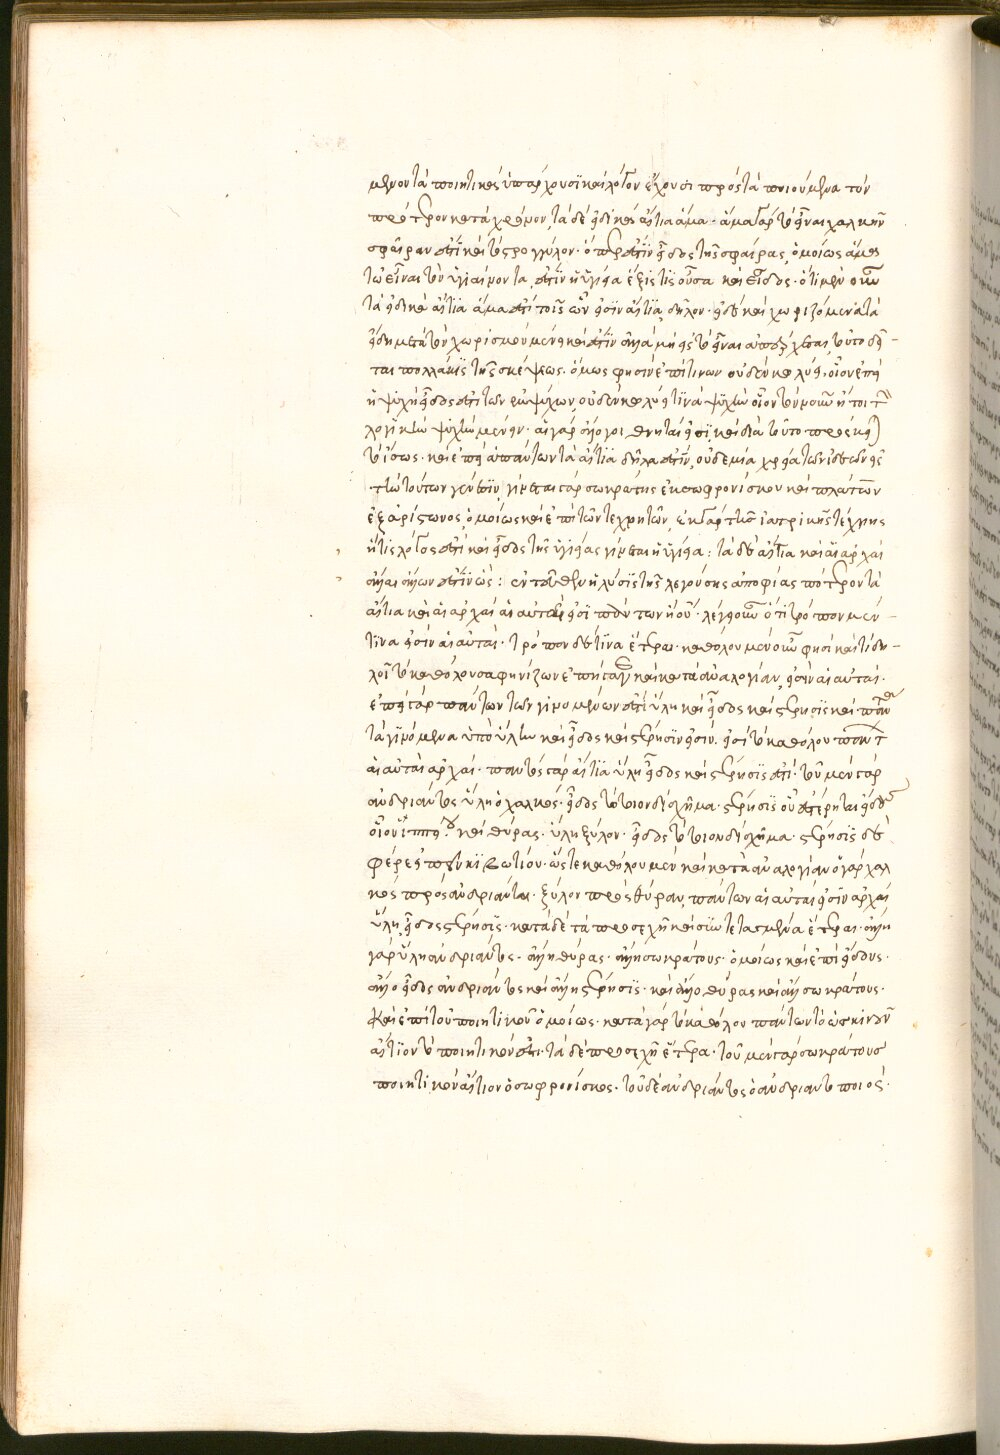 μενον τὰ ποιητικὰ ὑπάρχουσι καὶ λόγον ἔχουσι πρὸς τὰ ποιούμενα τὸν
πρότερον κατὰ χρόνον, τὰ δὲ εἰδικὰ αἴτια ἅμα· ἅμα γὰρ τὸ εἶναι χαλκῆν
σφαῖραν ἐστὶ καὶ τὸ στρογγύλον· ὅπερ ἐστὶν εἶδος τῆς σφαίρας, ὁμοίως ἅμα
τῶ εἶναι τὸν ὑγιαίνοντα, ἐστὶν ἡ ὑγίεια ἕξις τὶς οὖσα καὶ εἶδος· ὅτι μὲν οὖν
τὰ εἰδικὰ αἴτια ἅμα ἐστὶ τοῖς ὧν εἰσὶν αἴτια, δῆλον· εἰ δὲ καὶ χωριζόμενα τὰ
εἴδη μετὰ τὸν χωρισμὸν μένει καὶ ἐστὶν ἀλλὰ μὴ εἰς τὸ εἶναι ἀπέρχεται, τοῦτο δεῖ-
ται πολλάκις τῆς σκέψεως· ὅμως φησὶν ἐπί τινων οὐδὲν κωλύει, οἷον ἐπεὶ
ἡ ψυχὴ εἶδος ἐστὶ τῶν ἐμψύχων, οὐδὲν κωλύει τινὰ ψυχὴν οἷον τὸν νοῦν ἤτοι τὴν
λογικὴν ψυχὴν μένειν· αἱ γὰρ ἄλογοι θνηταί εἰσι, καὶ διὰ τοῦτο προσέκειτο
τὸ ἴσως· καὶ ἐπεὶ ἁπάντων τὰ αἴτια δῆλα ἐστὶν, οὐδεμία χρεία τῶν ἰδεῶν εἰς
τὴν τούτων γένεσιν, γίνεται γὰρ σωκράτης ἐκ σωφρονίσκου καὶ πλάτων
ἐξ ἀρίστωνος, ὁμοίως καὶ ἐπὶ τῶν τεχνητῶν, ἐκ γὰρ τῆς ἰατρικῆς τέχνης
ἥτις λόγος ἐστὶ καὶ εἶδος τῆς ὑγιείας γίνεται ἡ ὑγίεια: τὰ δὲ αἴτια καὶ αἱ ἀρχαὶ
ἄλλαι ἄλλων ἐστὶν ὡς: ἐντεῦθεν ἡ λύσις τῆς λεγούσης ἀπορίας πότερον τὰ
αἴτια καὶ αἱ ἀρχαὶ αἱ αὐταί εἰσι πάντων ἢ οὔ· λέγει οὖν ὅτι τρόπον μέν
τινα εἰσὶν αἱ αὐταὶ· τρόπον δέ τινα ἕτεραι· καθόλου μὲν οὖν φησὶ καὶ τί δη-
λοῖ τὸ καθόλου σαφηνίζων ἐπήγαγε καὶ κατὰ ἀναλογίαν, εἰσὶν αἱ αὐταί·
ἐπεὶ γὰρ πάντων τῶν γινομένων ἐστὶ ὕλη καὶ εἶδος καὶ στέρησις καὶ πάντα
τὰ γινόμενα ὑπὸ ὕλην καὶ εἶδος καὶ στέρησιν εἰσίν· εἰσὶ τὸ καθόλου πάντων
αἱ αὐταὶ ἀρχαί· παντὸς γὰρ αἴτια ὕλη εἶδος καὶ στέρησις ἐστί· τοῦ μὲν γὰρ
ἀνδριάντος ὕλη ὁ χαλκός· εἶδος τὸ τοιόνδε σχῆμα· στέρησις οὗ ἐστέρηται εἴδους
οἷον ἵππου· καὶ θύρας· ὕλη ξύλον· εἶδος τὸ τοιόνδε σχῆμα· στέρησις δὲ
φέρε εἰπεῖν κιβωτίου· ὥστε καθόλου μὲν καὶ κατὰ ἀναλογίαν ὃ γὰρ χαλ
κὸς πρὸς ἀνδριάντα· ξύλον πρὸς θύραν, πάντων αἱ αὐταί εἰσιν ἀρχαὶ
ὕλη, εἶδος στέρησις· κατὰ δὲ τὰ προσεχῆ καὶ συντεταγμένα ἕτεραι· ἄλλη
γὰρ ὕλη ἀνδριάντος· ἄλλη θύρας· ἄλλη σωκράτους· ὁμοίως καὶ ἐπὶ εἴδους·
ἄλλο εἶδος ἀνδριάντος καὶ ἄλλη στέρησις· καὶ ἄλλο θύρας καὶ ἄλλο σωκράτους·
καὶ ἐπὶ τοῦ ποιητικοῦ ὁμοίως· κατὰ γὰρ τὸ καθόλου πάντων τὸ ὡς κινοῦν
αἴτιον τὸ ποιητικόν ἐστι· τὰ δὲ προσεχῆ ἕτερα· τοῦ μὲν γὰρ σωκράτους
ποιητικὸν αἴτιον ὁ σωφρονίσκος· τοῦ δὲ ἀνδριάντος ὁ ἀνδριαντοποιός·